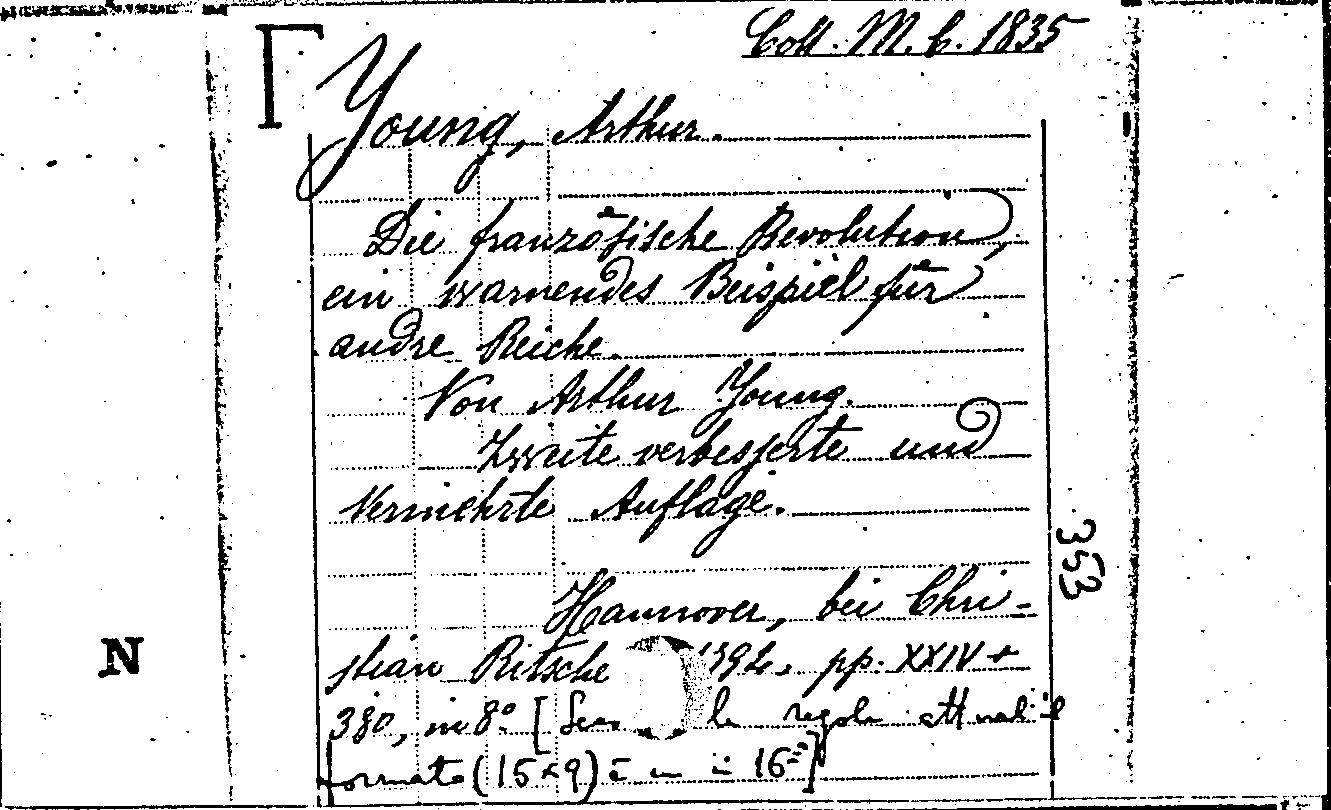 Coll. M. C. 1835
Young, Arthur.
Die französische Revolution,
ein warnendes Beispiel für
andre Reiche.
Von Arthur Young.
Zweite verbesserte und
Vermehrte Auflage.
353
Hannover, bei Chri-
N
stian Ritsche pp. XXIV +
380, in 8º [ la regola attual il
formato (15×9) è in 16]